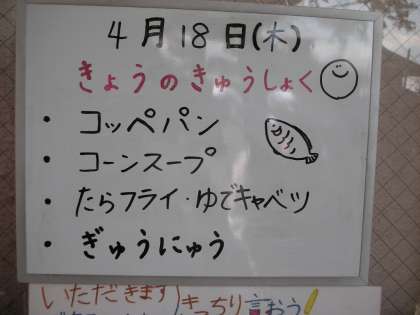 4月18日(木)
きょうのきゅうしょく
・コッペパン
・コーンスープ
・たらフライ・ゆでキャベツ
・ぎゅうにゅう
いただきます きっちり言おう!